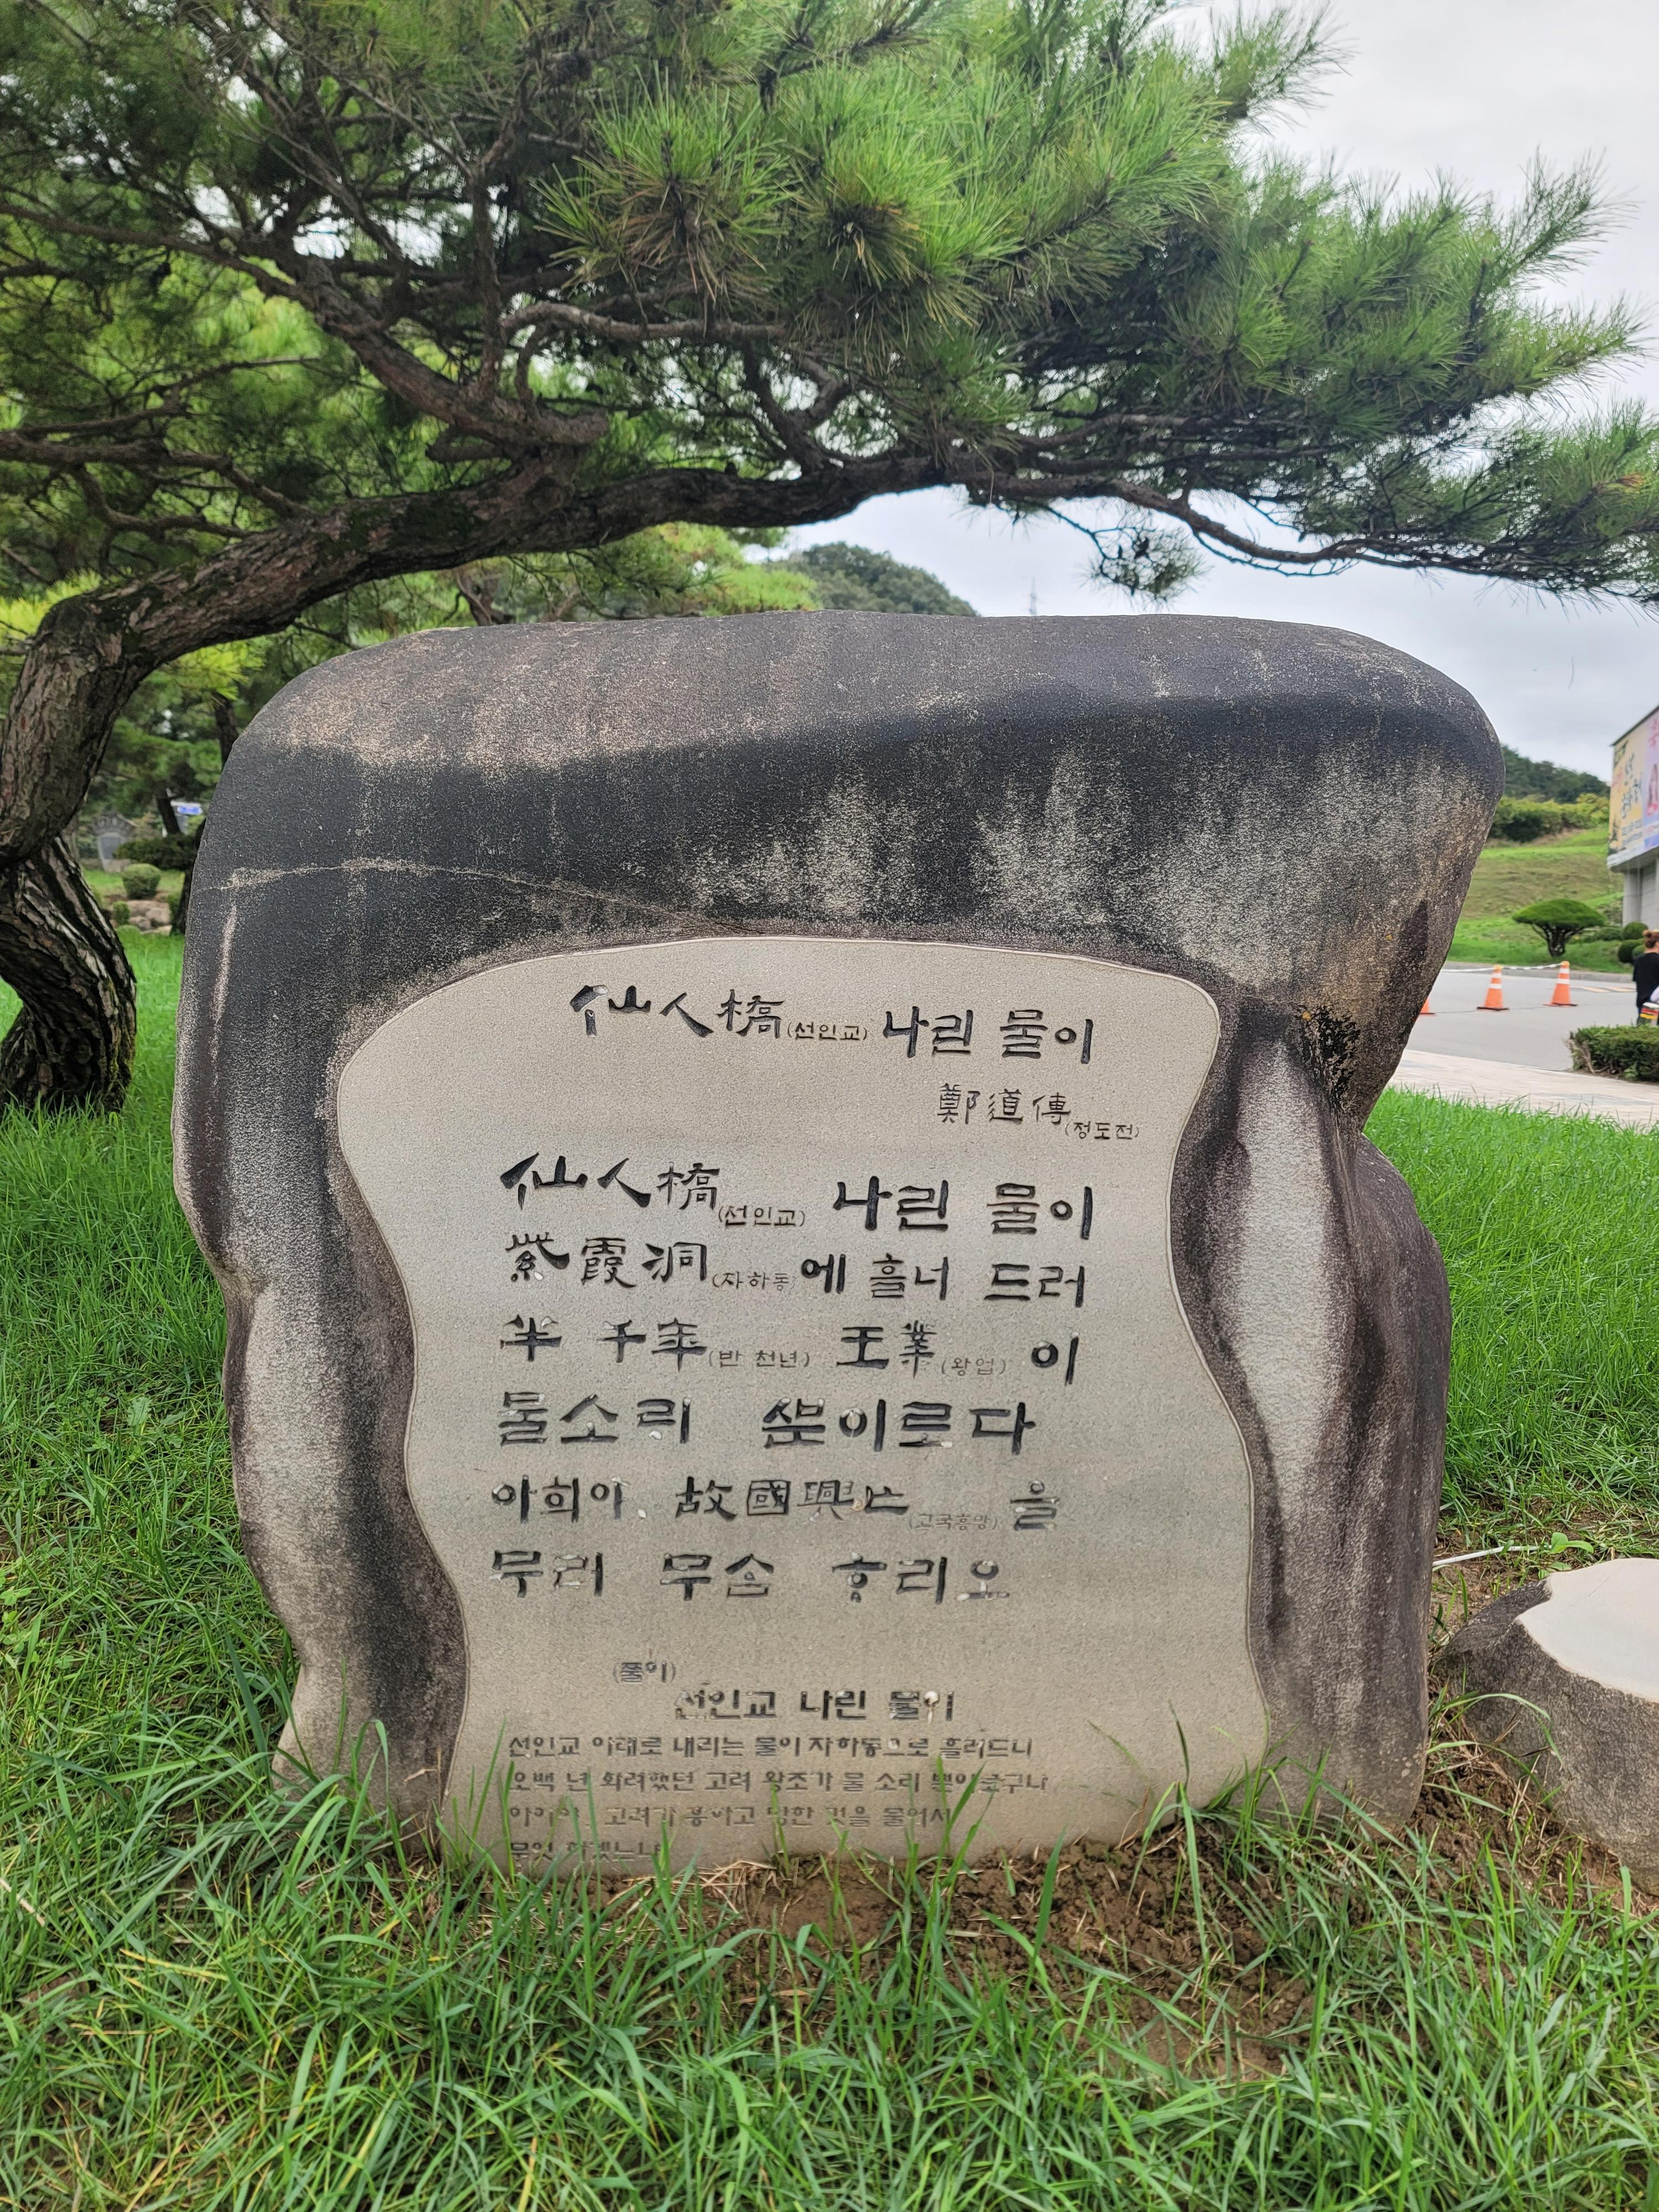 仙人橋(선인교) 나린 물이
鄭道傳(정도전)
仙人橋(선인교) 나린 물이
紫霞洞(자하동)에 흘너 드러
半 千年(반 천년) 王業(왕업) 이
물소리 ᄲᅮᆫ이로다
아희야 故國興亡(고국흥망) 을
무러 무ᄉᆞᆷ ᄒᆞ리오
(풀이)
선인교 나린 물이
선인교 아래로 내리는 물이 자하동으로 흘러드니
오백 년 화려했던 고려 왕조가 물 소리 뿐이로구나
아이야 고려가 흥하고 망한 것을 물어서
무엇 하겠느냐